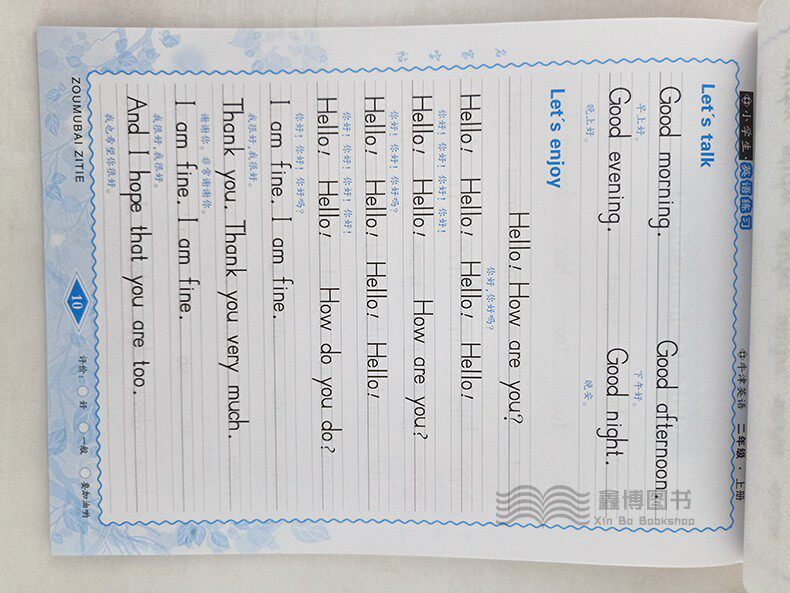 中小学生·英语练习
牛津英语 二年级·上册
Let's talk
Good morning. Good afternoon.
早上好。 下午好。
Good evening. Good night.
晚上好。 晚安。
Let's enjoy
Hello! How are you?
你好,你好吗?
Hello! Hello! Hello! Hello!
你好!你好!你好!你好!
Hello! Hello! How are you?
你好!你好!你好吗?
Hello! Hello! Hello! Hello!
你好!你好!你好!你好!
Hello! Hello! How do you do?
你好!你好!你好吗?
I am fine. I am fine.
我很好,我很好。
Thank you. Thank you very much.
谢谢你。非常谢谢你。
I am fine. I am fine.
我很好,我很好。
And I hope that you are too.
我也希望你很好。
名
家
字
帖
ZOUMUBAI ZITIE
10
评价: 好 一般 要加油哟
鑫博图书
Xin Bo Bookshop